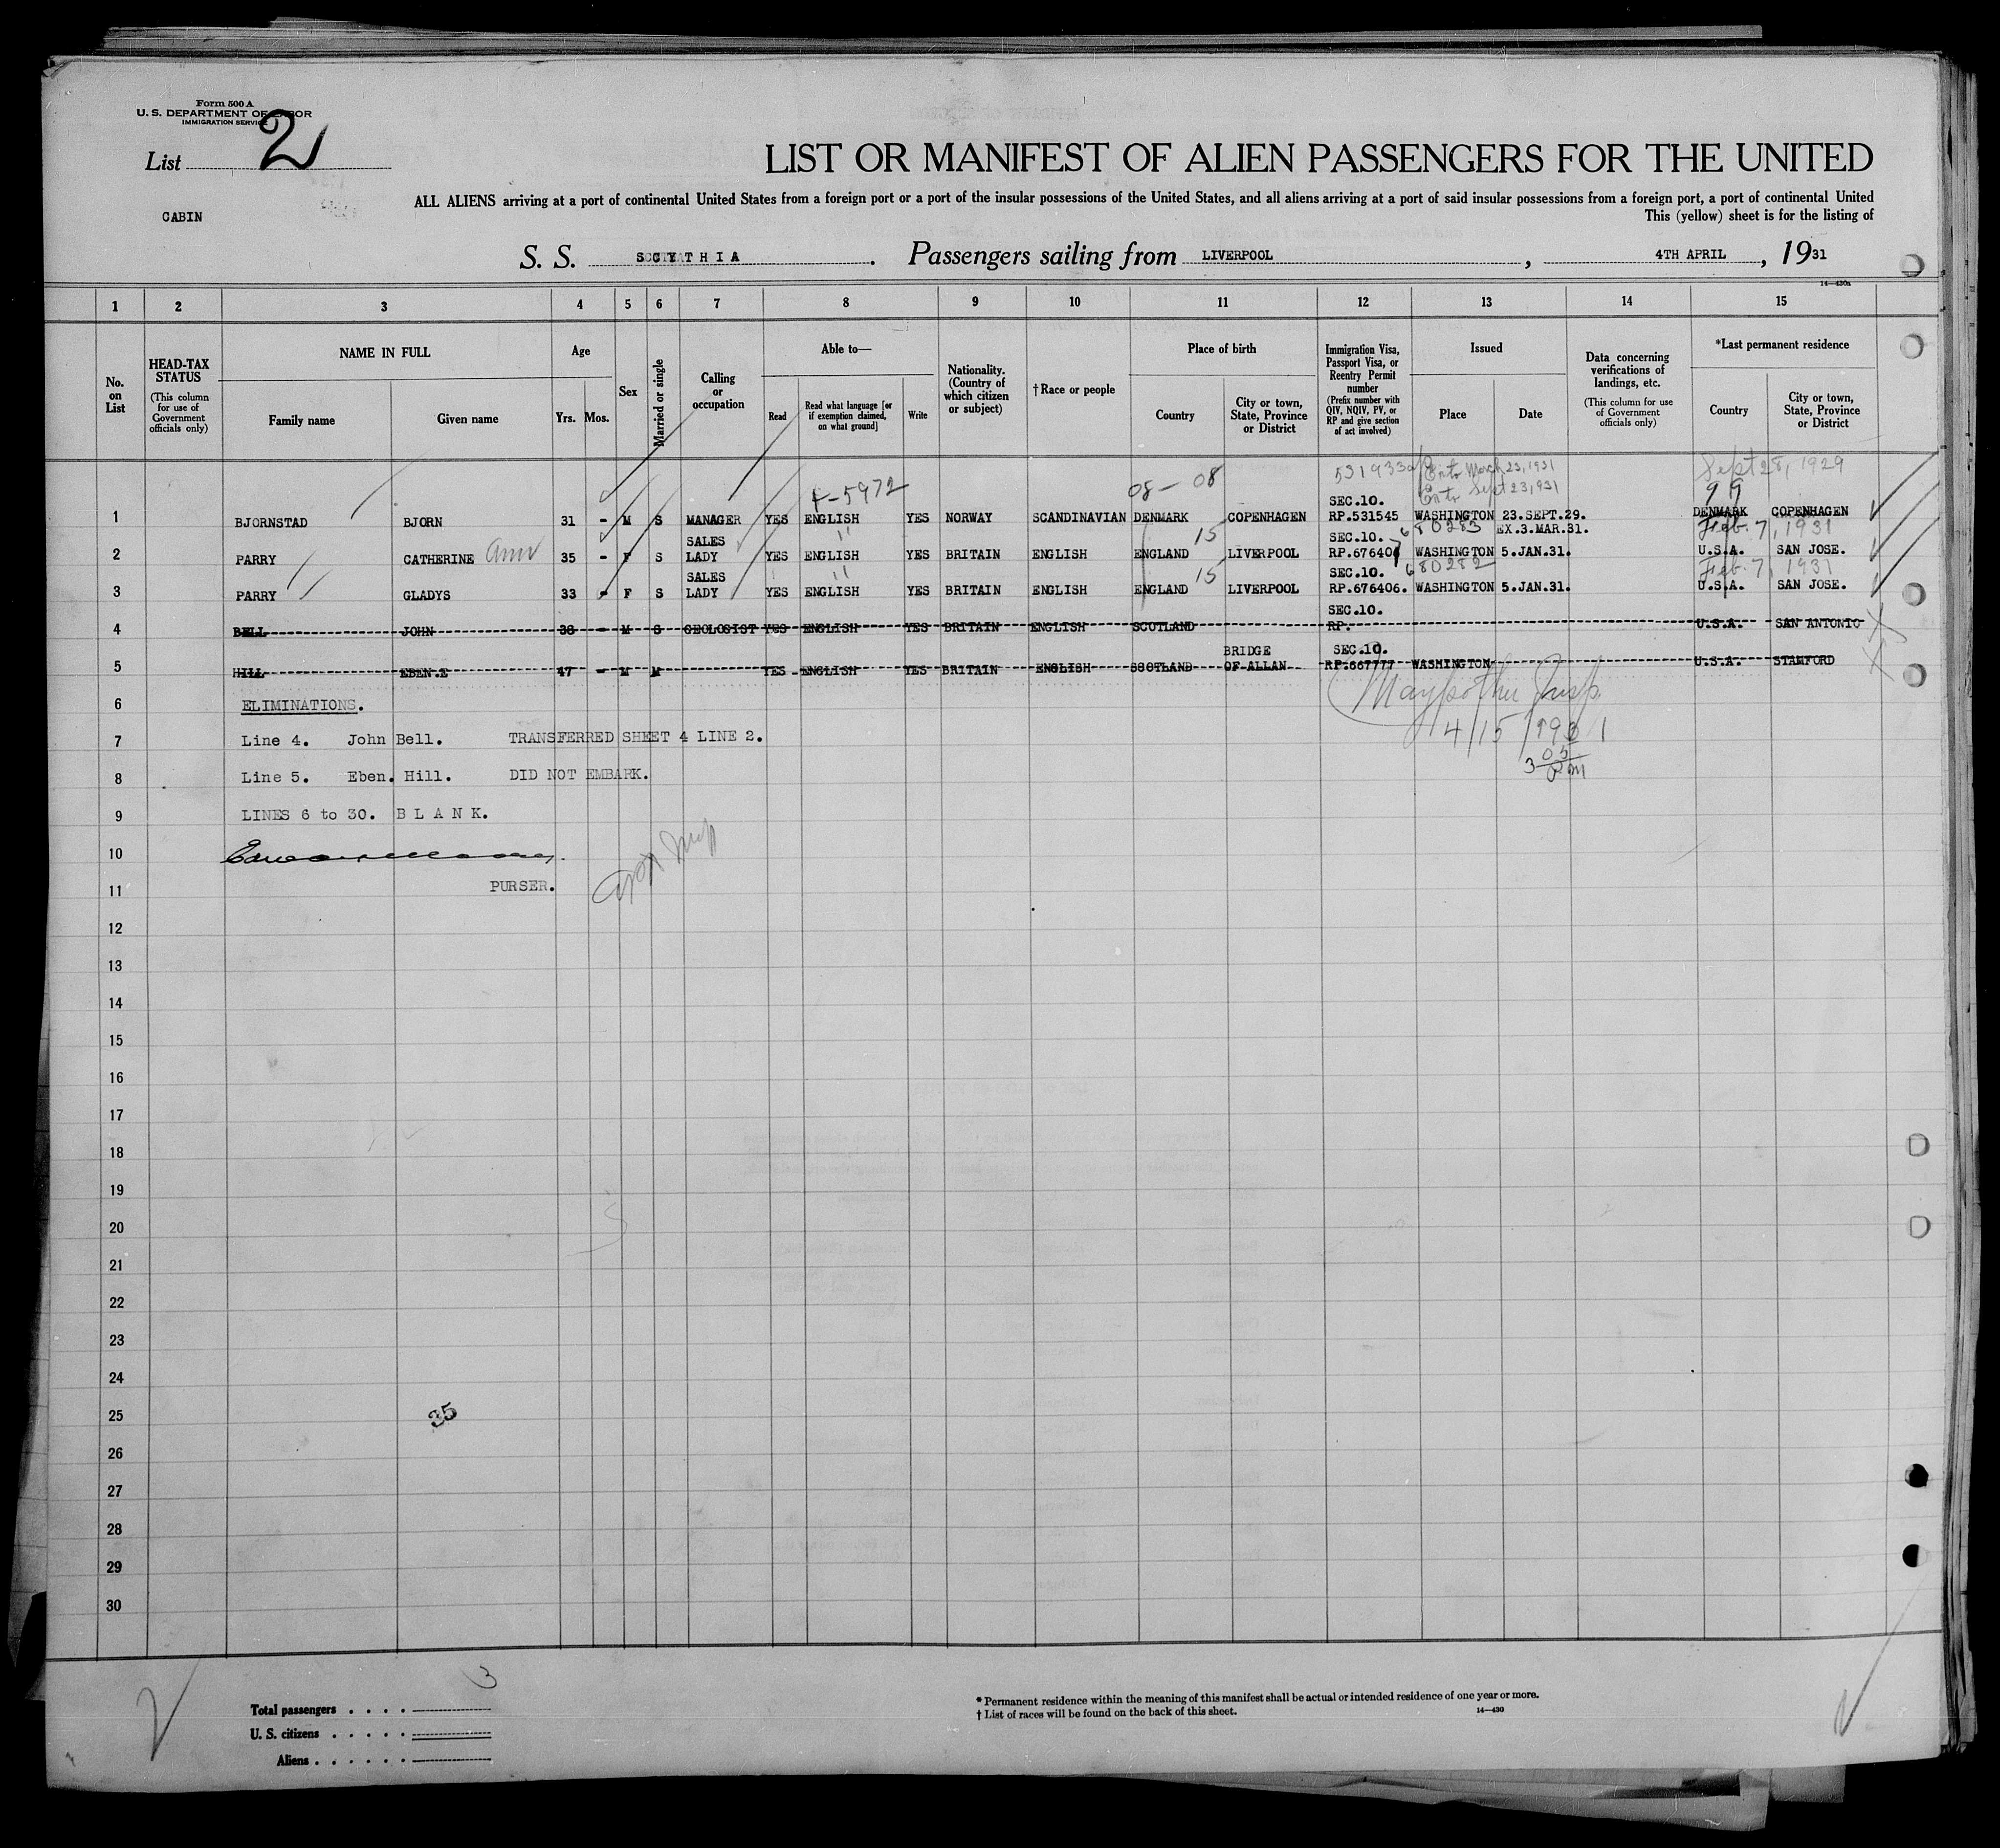 Form 500 A
U. S. DEPARTMENT OF LABOR
IMMIGRATION SERVICE
List 2
LIST OR MANIFEST OF ALIEN PASSENGERS FOR THE UNITED
ALL ALIENS arriving at a port of continental United States from a foreign port or a port of the insular possessions of the United States, and all aliens arriving at a port of said insular possessions from a foreign port, a port of continental United
CABIN
This (yellow) sheet is for the listing of
S. S. SCYTHIA. Passengers sailing from LIVERPOOL, 4TH APRIL, 1931
14—430a
1 2 3 4 5 6 7 8 9 10 11 12 13 14 15
No. on List
HEAD-TAX STATUS
(This column for use of Government officials only)
NAME IN FULL
Family name
Given name
Age
Yrs. Mos.
Sex
Married or single
Calling or occupation
Able to—
Read
Read what language [or if exemption claimed, on what ground]
Write
Nationality. (Country of which citizen or subject)
†Race or people
Place of birth
Country
City or town, State, Province or District
Immigration Visa, Passport Visa, or Reentry Permit number
(Prefix number with QIV, NQIV, PV, or RP and give section of act involved)
Issued
Place
Date
Data concerning verifications of landings, etc.
(This column for use of Government officials only)
*Last permanent residence
Country
City or town, State, Province or District
531933 March 23, 1931 Sept 28, 1929
4-5972 08 - 08 Sept 23, 931 99
SEC.10.
1 BJORNSTAD BJORN 31 - M S MANAGER YES ENGLISH YES NORWAY SCANDINAVIAN DENMARK COPENHAGEN RP.531545 WASHINGTON 23.SEPT.29. DENMARK COPENHAGEN
EX.3.MAR.31.
SALES " 15 SEC.10. 680283 Feb. 7, 1931
2 PARRY CATHERINE Ann 35 - F S LADY YES ENGLISH YES BRITAIN ENGLISH ENGLAND LIVERPOOL RP.676407 WASHINGTON 5.JAN.31. U.S.A. SAN JOSE.
SALES " 15 SEC.10. 680282 Feb. 7, 1931
3 PARRY GLADYS 33 - F S LADY YES ENGLISH YES BRITAIN ENGLISH ENGLAND LIVERPOOL RP.676406. WASHINGTON 5.JAN.31. U.S.A. SAN JOSE.
SEC.10.
4 BELL JOHN 38 - M S GEOLOGIST YES ENGLISH YES BRITAIN ENGLISH SCOTLAND RP. U.S.A. SAN ANTONIO
BRIDGE SEC.10.
5 HILL EBEN.E 47 - M M YES ENGLISH YES BRITAIN ENGLISH SCOTLAND OF-ALLAN RP.667777 WASHINGTON U.S.A. STAMFORD
6 ELIMINATIONS.
7 Line 4. John Bell. TRANSFERRED SHEET 4 LINE 2. 4/15/1931
8 Line 5. Eben. Hill. DID NOT EMBARK. 3 05 PM
9 LINES 6 to 30. B L A N K.
10
11 PURSER.
12
13
14
15
16
17
18
19
20
21
22
23
24
25 35
26
27
28
29
30
Total passengers . . . . 3
U. S. citizens . . . . .
Aliens . . . . . .
* Permanent residence within the meaning of this manifest shall be actual or intended residence of one year or more.
† List of races will be found on the back of this sheet.
14—430